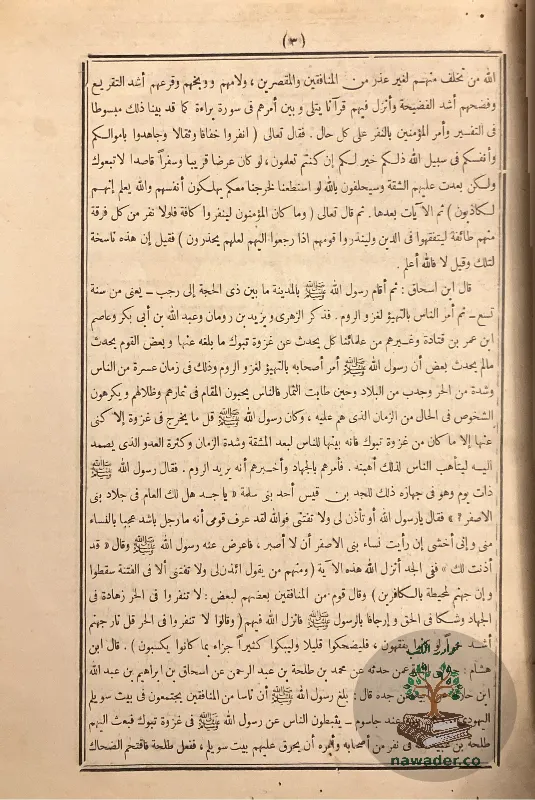 (٣)
الله من تخلف منهم لغير عذر من المنافقين والمقصرين، ولامهم ووبخهم وقرعهم أشد التقريع
وفضحهم أشد الفضيحة وأنزل فيهم قرآنا يتلى وبين أمرهم فى سورة براءة كما قد بينا ذلك مبسوطا
فى التفسير وأمر المؤمنين بالنفر على كل حال. فقال تعالى (انفروا خفافا وثقالا وجاهدوا باموالكم
وأنفسكم فى سبيل الله ذلكم خير لكم إن كنتم تعلمون، لو كان عرضا قريبا وسفراً قاصدا لاتبعوك
ولكن بعدت عليهم الشقة وسيحلفون بالله لو استطعنا لخرجنا معكم يهلكون أنفسهم والله يعلم إنهم
لكاذبون) ثم الآيات بعدها. ثم قال تعالى (وما كان المؤمنون لينفروا كافة فلولا نفر من كل فرقة
منهم طائفة ليتفقهوا فى الدين ولينذروا قومهم اذا رجعوا اليهم لعلهم يحذرون) فقيل إن هذه ناسخة
لتلك وقيل لا فالله أعلم.
قال ابن اسحاق: ثم أقام رسول الله ﷺ بالمدينة ما بين ذى الحجة إلى رجب ـ يعنى من سنة
تسع ـ ثم أمر الناس بالتهيؤ لغزو الروم. فذكر الزهرى ويزيد بن رومان وعبد الله بن أبى بكر وعاصم
ابن عمر بن قتادة وغيرهم من علمائنا كل يحدث عن غزوة تبوك ما بلغه عنها وبعض القوم يحدث
مالم يحدث بعض أن رسول الله ﷺ أمر أصحابه بالتهيؤ لغزو الروم وذلك فى زمان عسرة من الناس
وشدة من الحر وجدب من البلاد وحين طابت الثمار فالناس يحبون المقام فى ثمارهم وظلالهم ويكرهون
الشخوص فى الحال من الزمان الذى هم عليه، وكان رسول الله ﷺ قل ما يخرج فى غزوة إلا كنى
عنها إلا ما كان من غزوة تبوك فانه بينها للناس لبعد المشقة وشدة الزمان وكثرة العدو الذى يصمد
اليه ليتأهب الناس لذلك أهبته. فأمرهم بالجهاد وأخبرهم أنه يريد الروم. فقال رسول الله ﷺ
ذات يوم وهو فى جهازه ذلك للجد بن قيس أحد بنى سلمة «يا جد هل لك العام فى جلاد بنى
الاصفر؟» فقال يارسول الله أو تأذن لى ولا تفتنى فوالله لقد عرف قومى أنه ما رجل باشد عجبا بالنساء
منى وإنى أخشى إن رأيت نساء بنى الاصفر أن لا أصبر، فاعرض عنه رسول الله ﷺ وقال «قد
أذنت لك» ففى الجد أنزل الله هذه الآية (ومنهم من يقول ائذن لى ولا تفتنى ألا فى الفتنة سقطوا
وإن جهنم لمحيطة بالكافرين) وقال قوم من المنافقين بعضهم لبعض: لا تنفروا فى الحر زهادة فى
الجهاد وشكا فى الحق وإرجافا بالرسول ﷺ فانزل الله فيهم (وقالوا لا تنفروا فى الحر قل نار جهنم
أشد لو يفقهون، فليضحكوا قليلا وليبكوا كثيراً جزاء بما كانوا يكسبون). قال ابن
هشام: عن حدثه عن محمد بن طلحة بن عبد الرحمن عن اسحاق بن ابراهيم بن عبد الله
ابن عن جده قال: بلغ رسول الله ﷺ أن ناسا من المنافقين يجتمعون فى بيت سويلم
اليهودى عند جاسوم ـ يثبطون الناس عن رسول الله ﷺ فى غزوة تبوك فبعث اليهم
طلحة بن فى نفر من أصحابه وأمره أن يحرق عليهم بيت سويلم، ففعل طلحة فاقتحم الضحاك
nawader.co